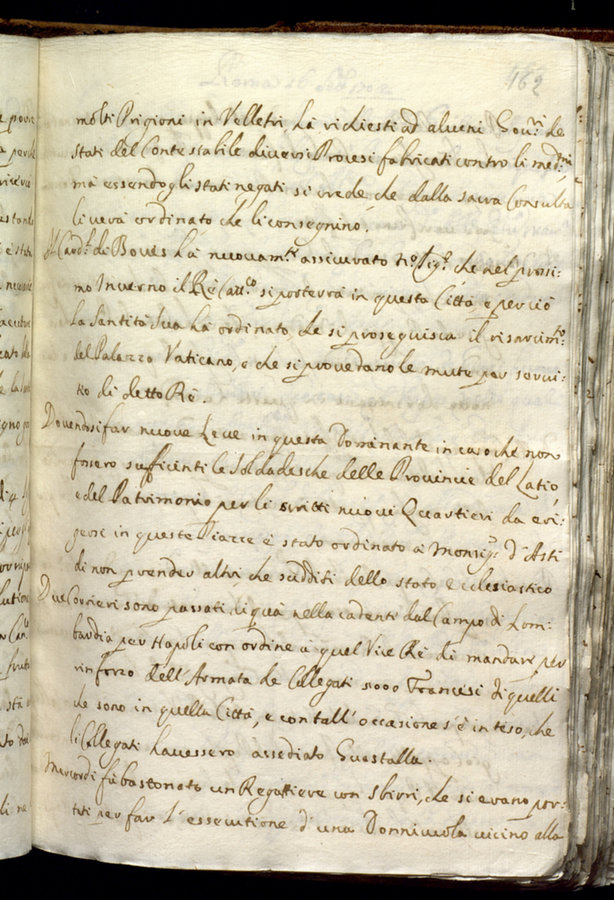 162
molti Prigioni in Velletri, hà richiesti ad alcuni Gov:ri de
stati del Contestabile diversi Processi fabricati contro li med:mi
mà essendogli stati negati si crede che dalla sacra Consulta
li verà ordinato che li consegnino
Il Card:l di Boves hà nuovam:te assicurato N:ro Sig:re che nel prossi:
mo Inverno il Rè Catt:co si porterrà in questa Città e perciò
la Santità Sua hà ordinato, che si proseguisca il risarcim:to
del Palazzo Vaticano, e che si provedano le mute per servi:
tio di detto Rè.
Dovendosi far nuove Leve in questa Dominante in caso che non
fossero sufficienti le Soldadesche delle Provincie del Latio
e del Patrimonio per li scritti nuovi Quartieri da eri:
gersi in queste Piazze è stato ordinato à Monsig:r d'Asti
di non prender altri che sudditi dello stato Ecclesiastico
Due Corrieri sono passati di quà nella cadente dal Campo di Lom:
bardia per Napoli con ordine à quel Vice Rè di mandare per
rinforzo dell'Armata de Collegati 5000 Francesi di quelli
che sono in quella Città, e con tall'occasione s'è inteso, che
li Collegati havessero assediato Guastalla.
Mercordì fù bastonato un Regattiere con Sbirri, che si erano por:
tati per far l'essecutione d'una Donnicciola vicino alla